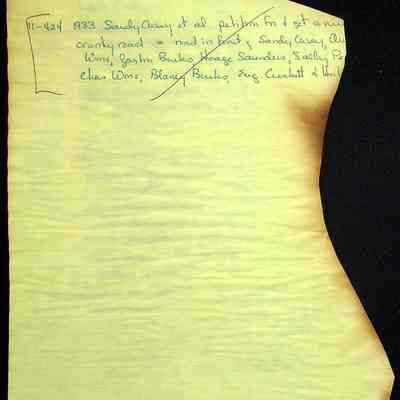 11-424 1933 Sandy Casey et al petition for & get a
county road = road in front of Sandy Casey,
Wms, Gaston Burks, Horace Saunders, Sandy
Chas Wms, Blaney Burks, Eug. Crockett &